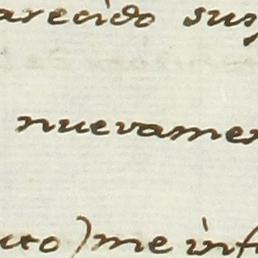 arecido sus
nuevamen
uto) me inf